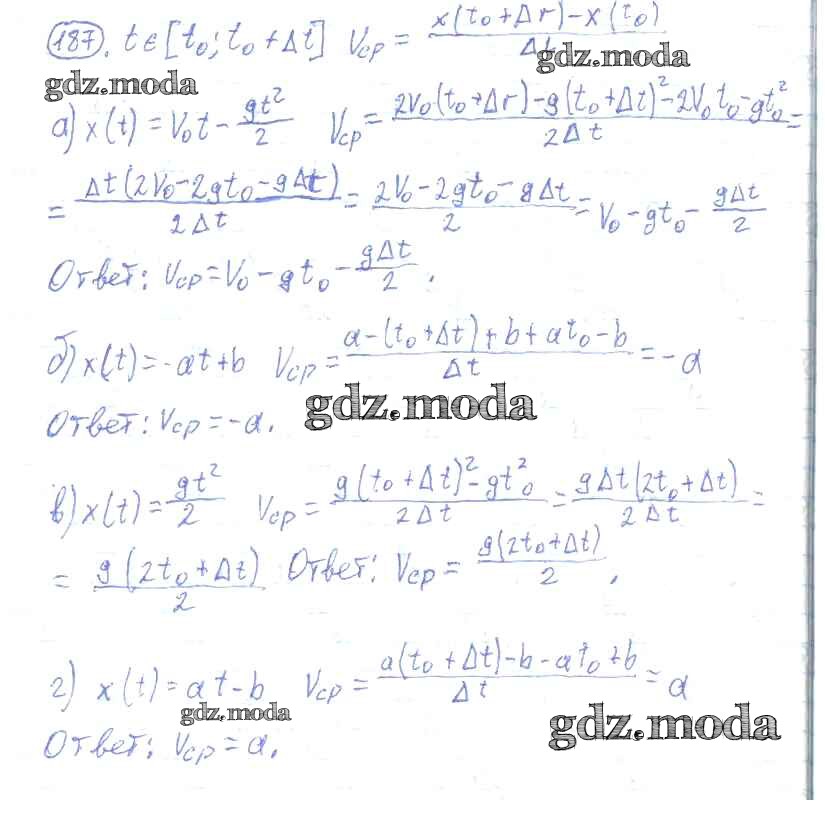 187. t ∈ [t₀; t₀ + Δt] Vср = (x(t₀ + Δr) − x(t₀)) / Δt
gdz.moda gdz.moda
а) x(t) = V₀t − gt²/2 Vср = (2V₀(t₀ + Δr) − g(t₀ + Δt)² − 2V₀t₀ − gt₀²) / 2Δt =
= Δt(2V₀ − 2gt₀ − gΔt) / 2Δt = (2V₀ − 2gt₀ − gΔt) / 2 = V₀ − gt₀ − gΔt/2
Ответ: Vср = V₀ − gt₀ − gΔt/2.
б) x(t) = −at + b Vср = (a − (t₀ + Δt) + b + at₀ − b) / Δt = −a
gdz.moda
Ответ: Vср = −a.
в) x(t) = gt²/2 Vср = (g(t₀ + Δt)² − gt₀²) / 2Δt = gΔt(2t₀ + Δt) / 2Δt =
= g(2t₀ + Δt) / 2 Ответ: Vср = g(2t₀ + Δt) / 2.
г) x(t) = at − b Vср = (a(t₀ + Δt) − b − at₀ + b) / Δt = a
gdz.moda gdz.moda
Ответ: Vср = a.